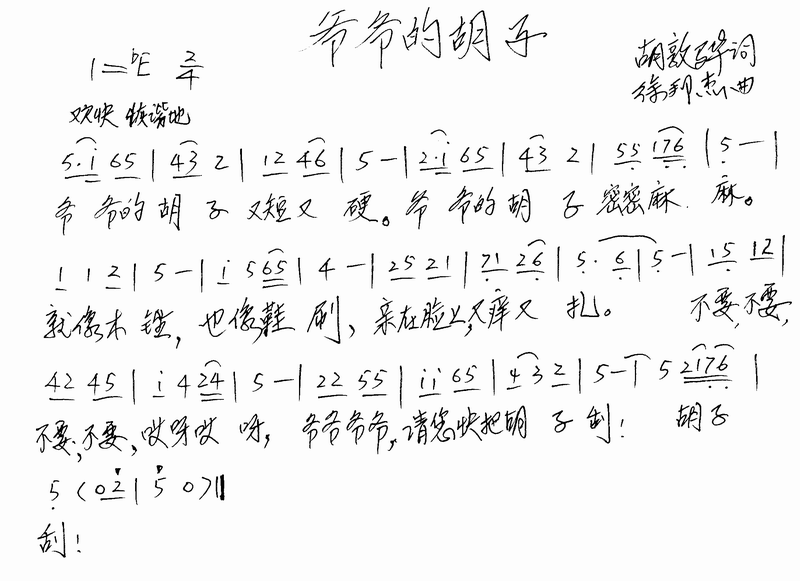 爷爷的胡子
1=♭E 2/4
胡敦骅词
徐邦杰曲
欢快 诙谐地
5·i 65 | 43 2 | 12 46 | 5 — | 2·i 65 | 43 2 | 55 176 | 5 — |
爷 爷的 胡 子 又短又 硬。爷 爷的 胡 子 密密麻 麻。
1 1 2 | 5 — | i 5 65 | 4 — | 25 21 | 71 26 | 5· 6 | 5 — | 15 12 |
就像木 锉, 也像鞋 刷, 亲在脸上,又痒又 扎。 不要,不要,
42 45 | i 4 24 | 5 — | 22 55 | ii 65 | 4 3 2 | 5 — | 5 2176 |
不要,不要,哎呀哎 呀, 爷爷爷爷,请您快把胡 子 刮! 胡子
5 (02 | 5 0) ‖
刮!